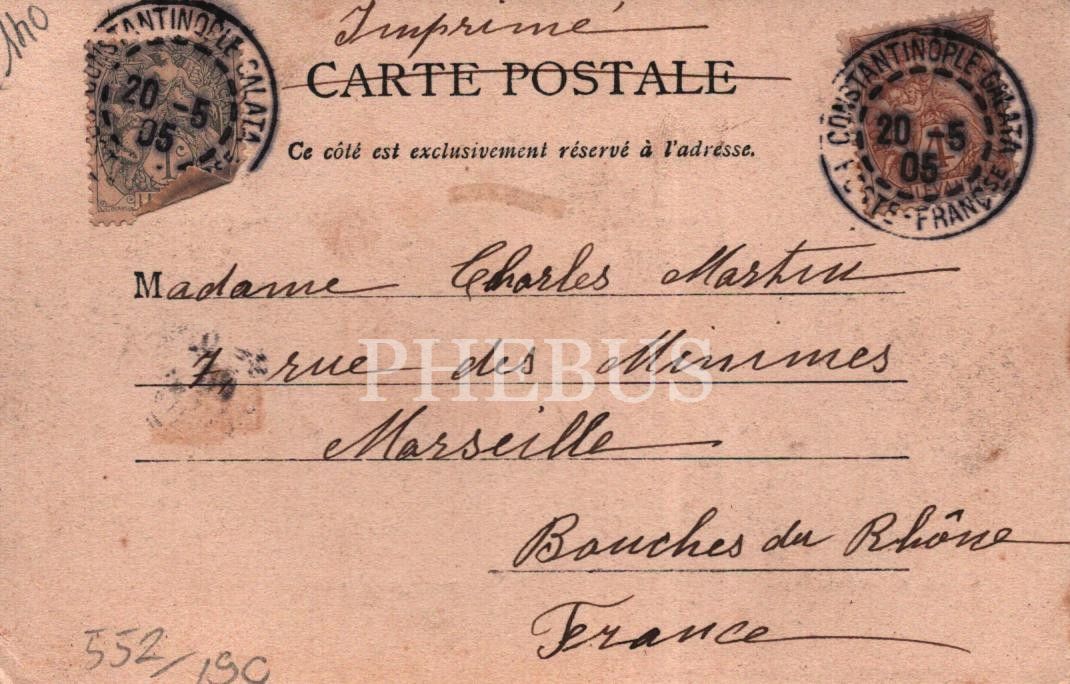 140
Imprimé
CARTE POSTALE
Ce côté est exclusivement réservé à l'adresse.
CONSTANTINOPLE-GALATA
20 -5
05
1
CONSTANTINOPLE-GALATA
20 -5
05
POSTE FRANÇSE
4
LEVANT
Madame Charles Martin
7 rue des Minimes
PHEBUS
Marseille
Bouches du Rhône
France
552/190